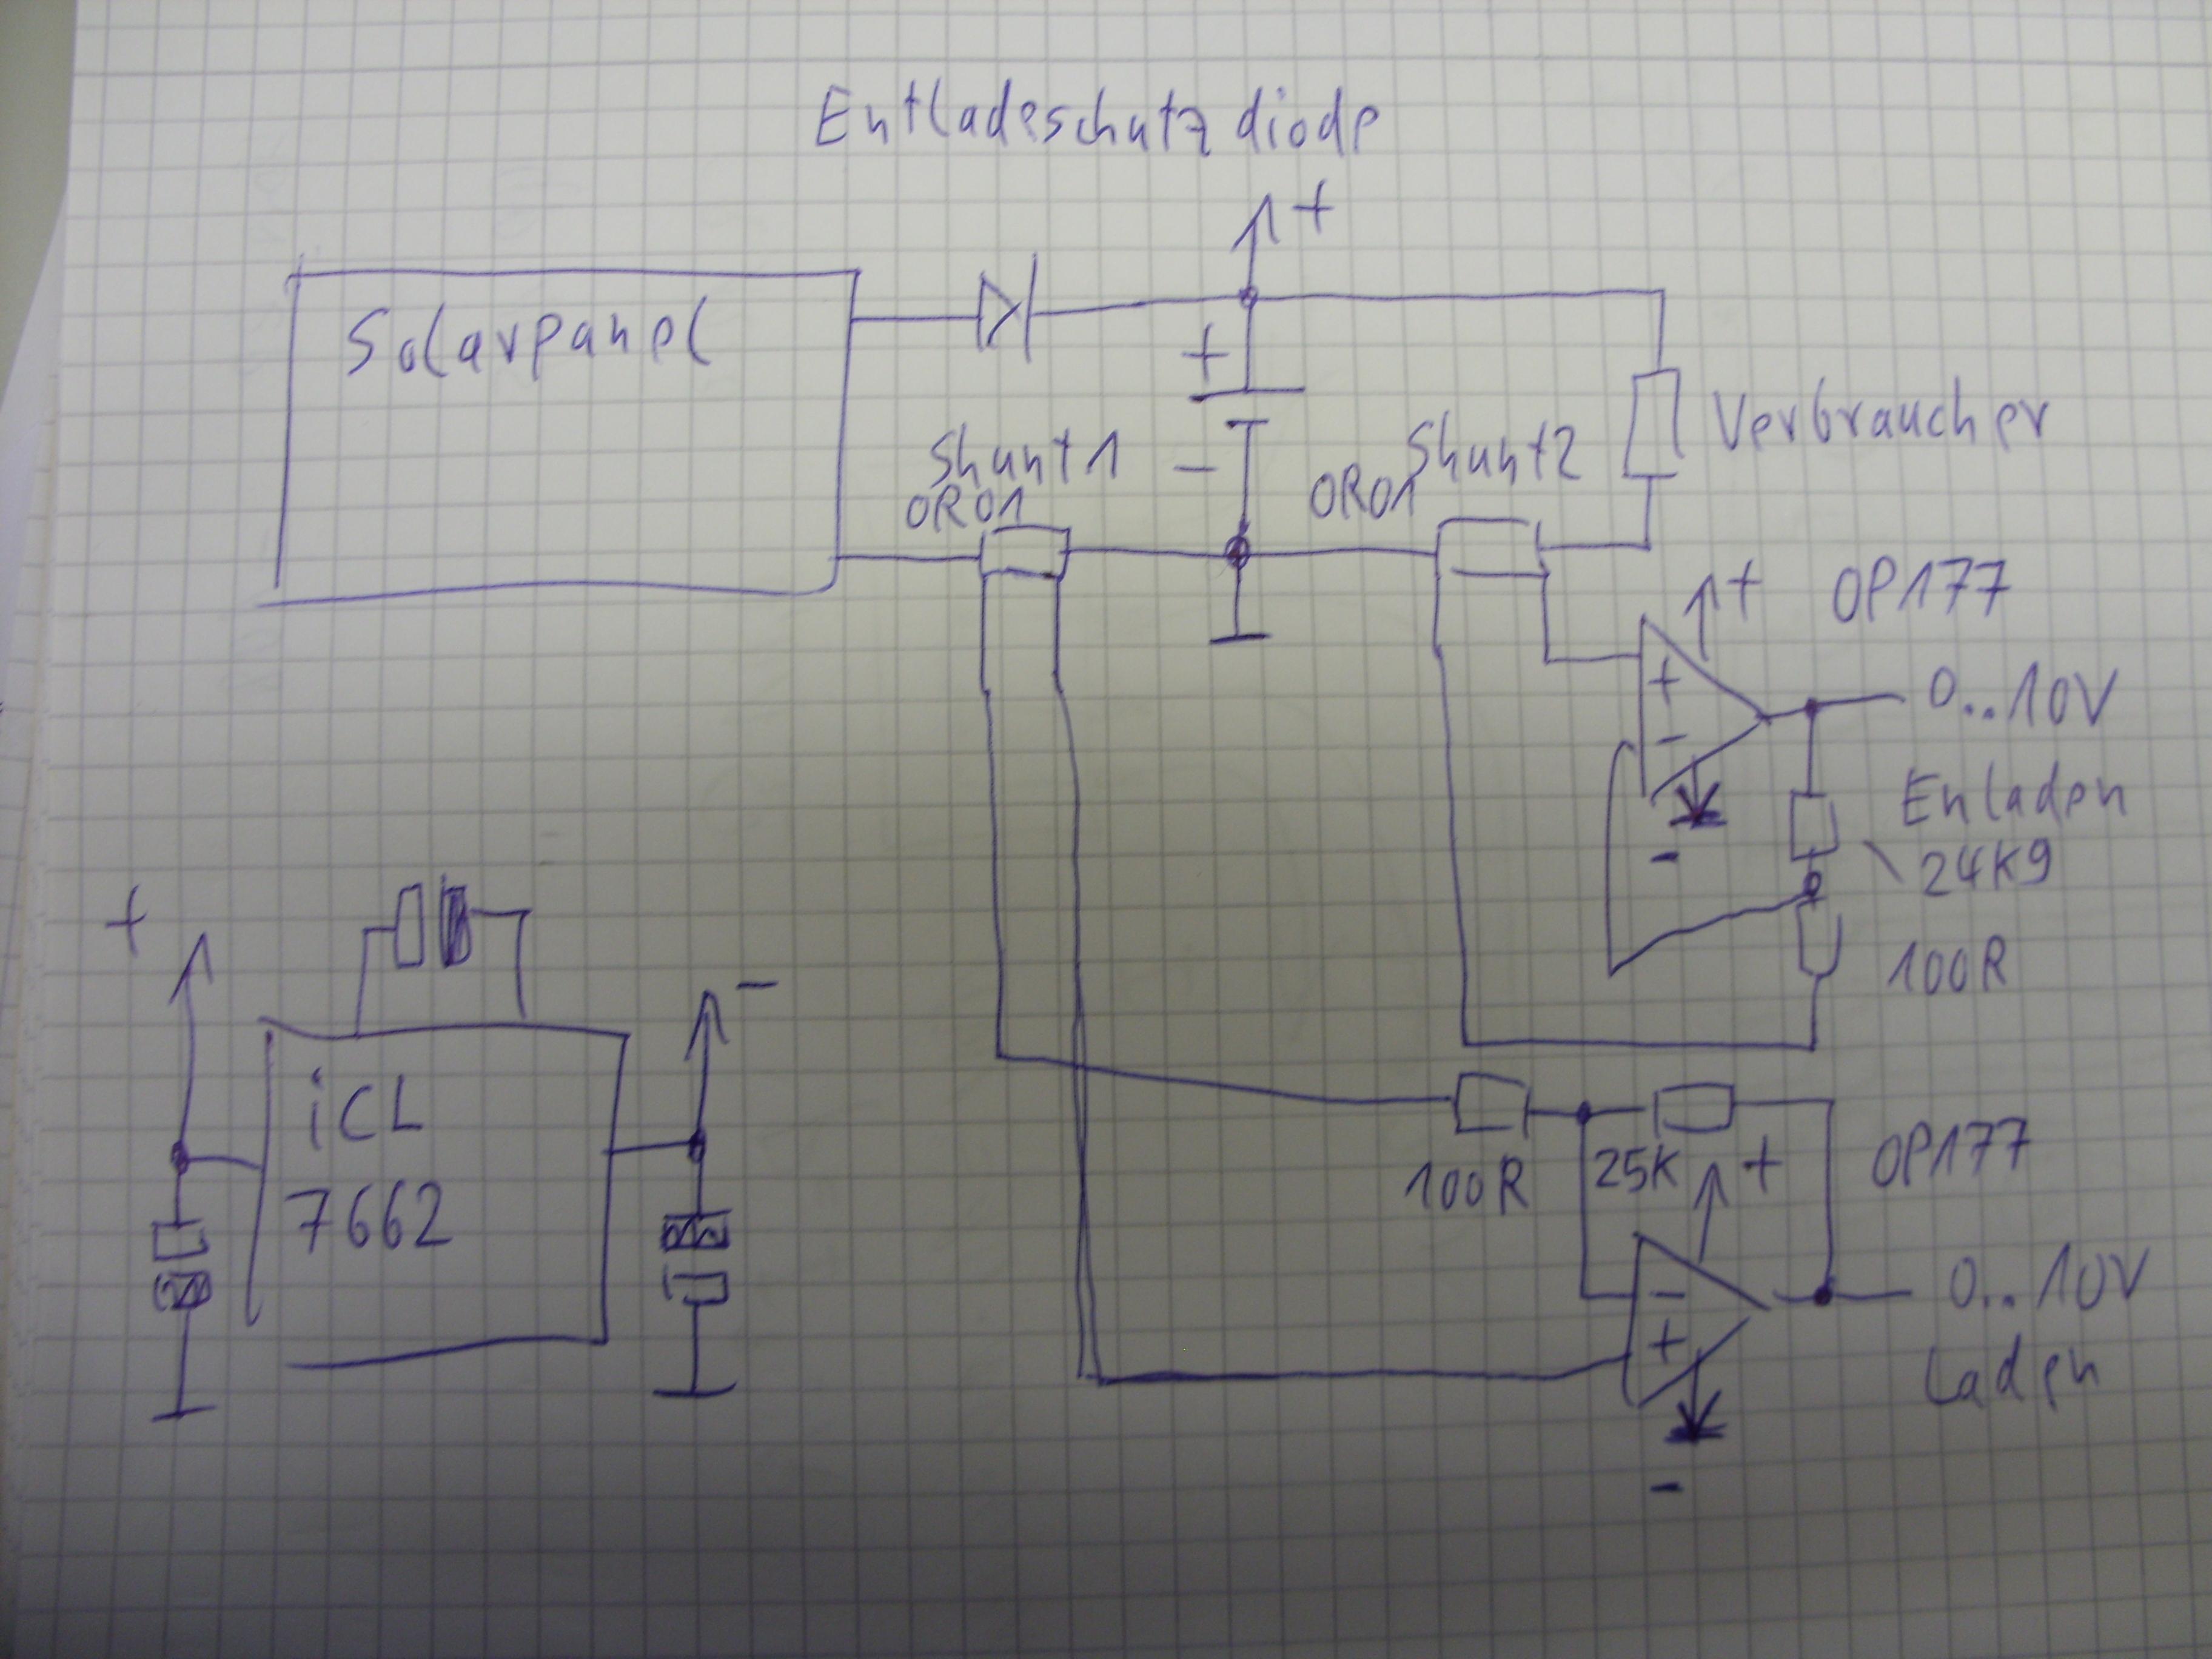 Entladeschutzdiode
+
Solarpanel
+
-
Shunt1
0R01
Shunt2
0R01
Verbraucher
+
OP177
+
-
0..10V
Enladen
24K9
-
100R
+
-
iCL
7662
100R
25K
+
OP177
-
+
0..10V
Laden
-